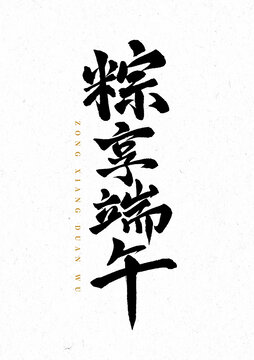 粽享端午
ZONG XIANG DUAN WU